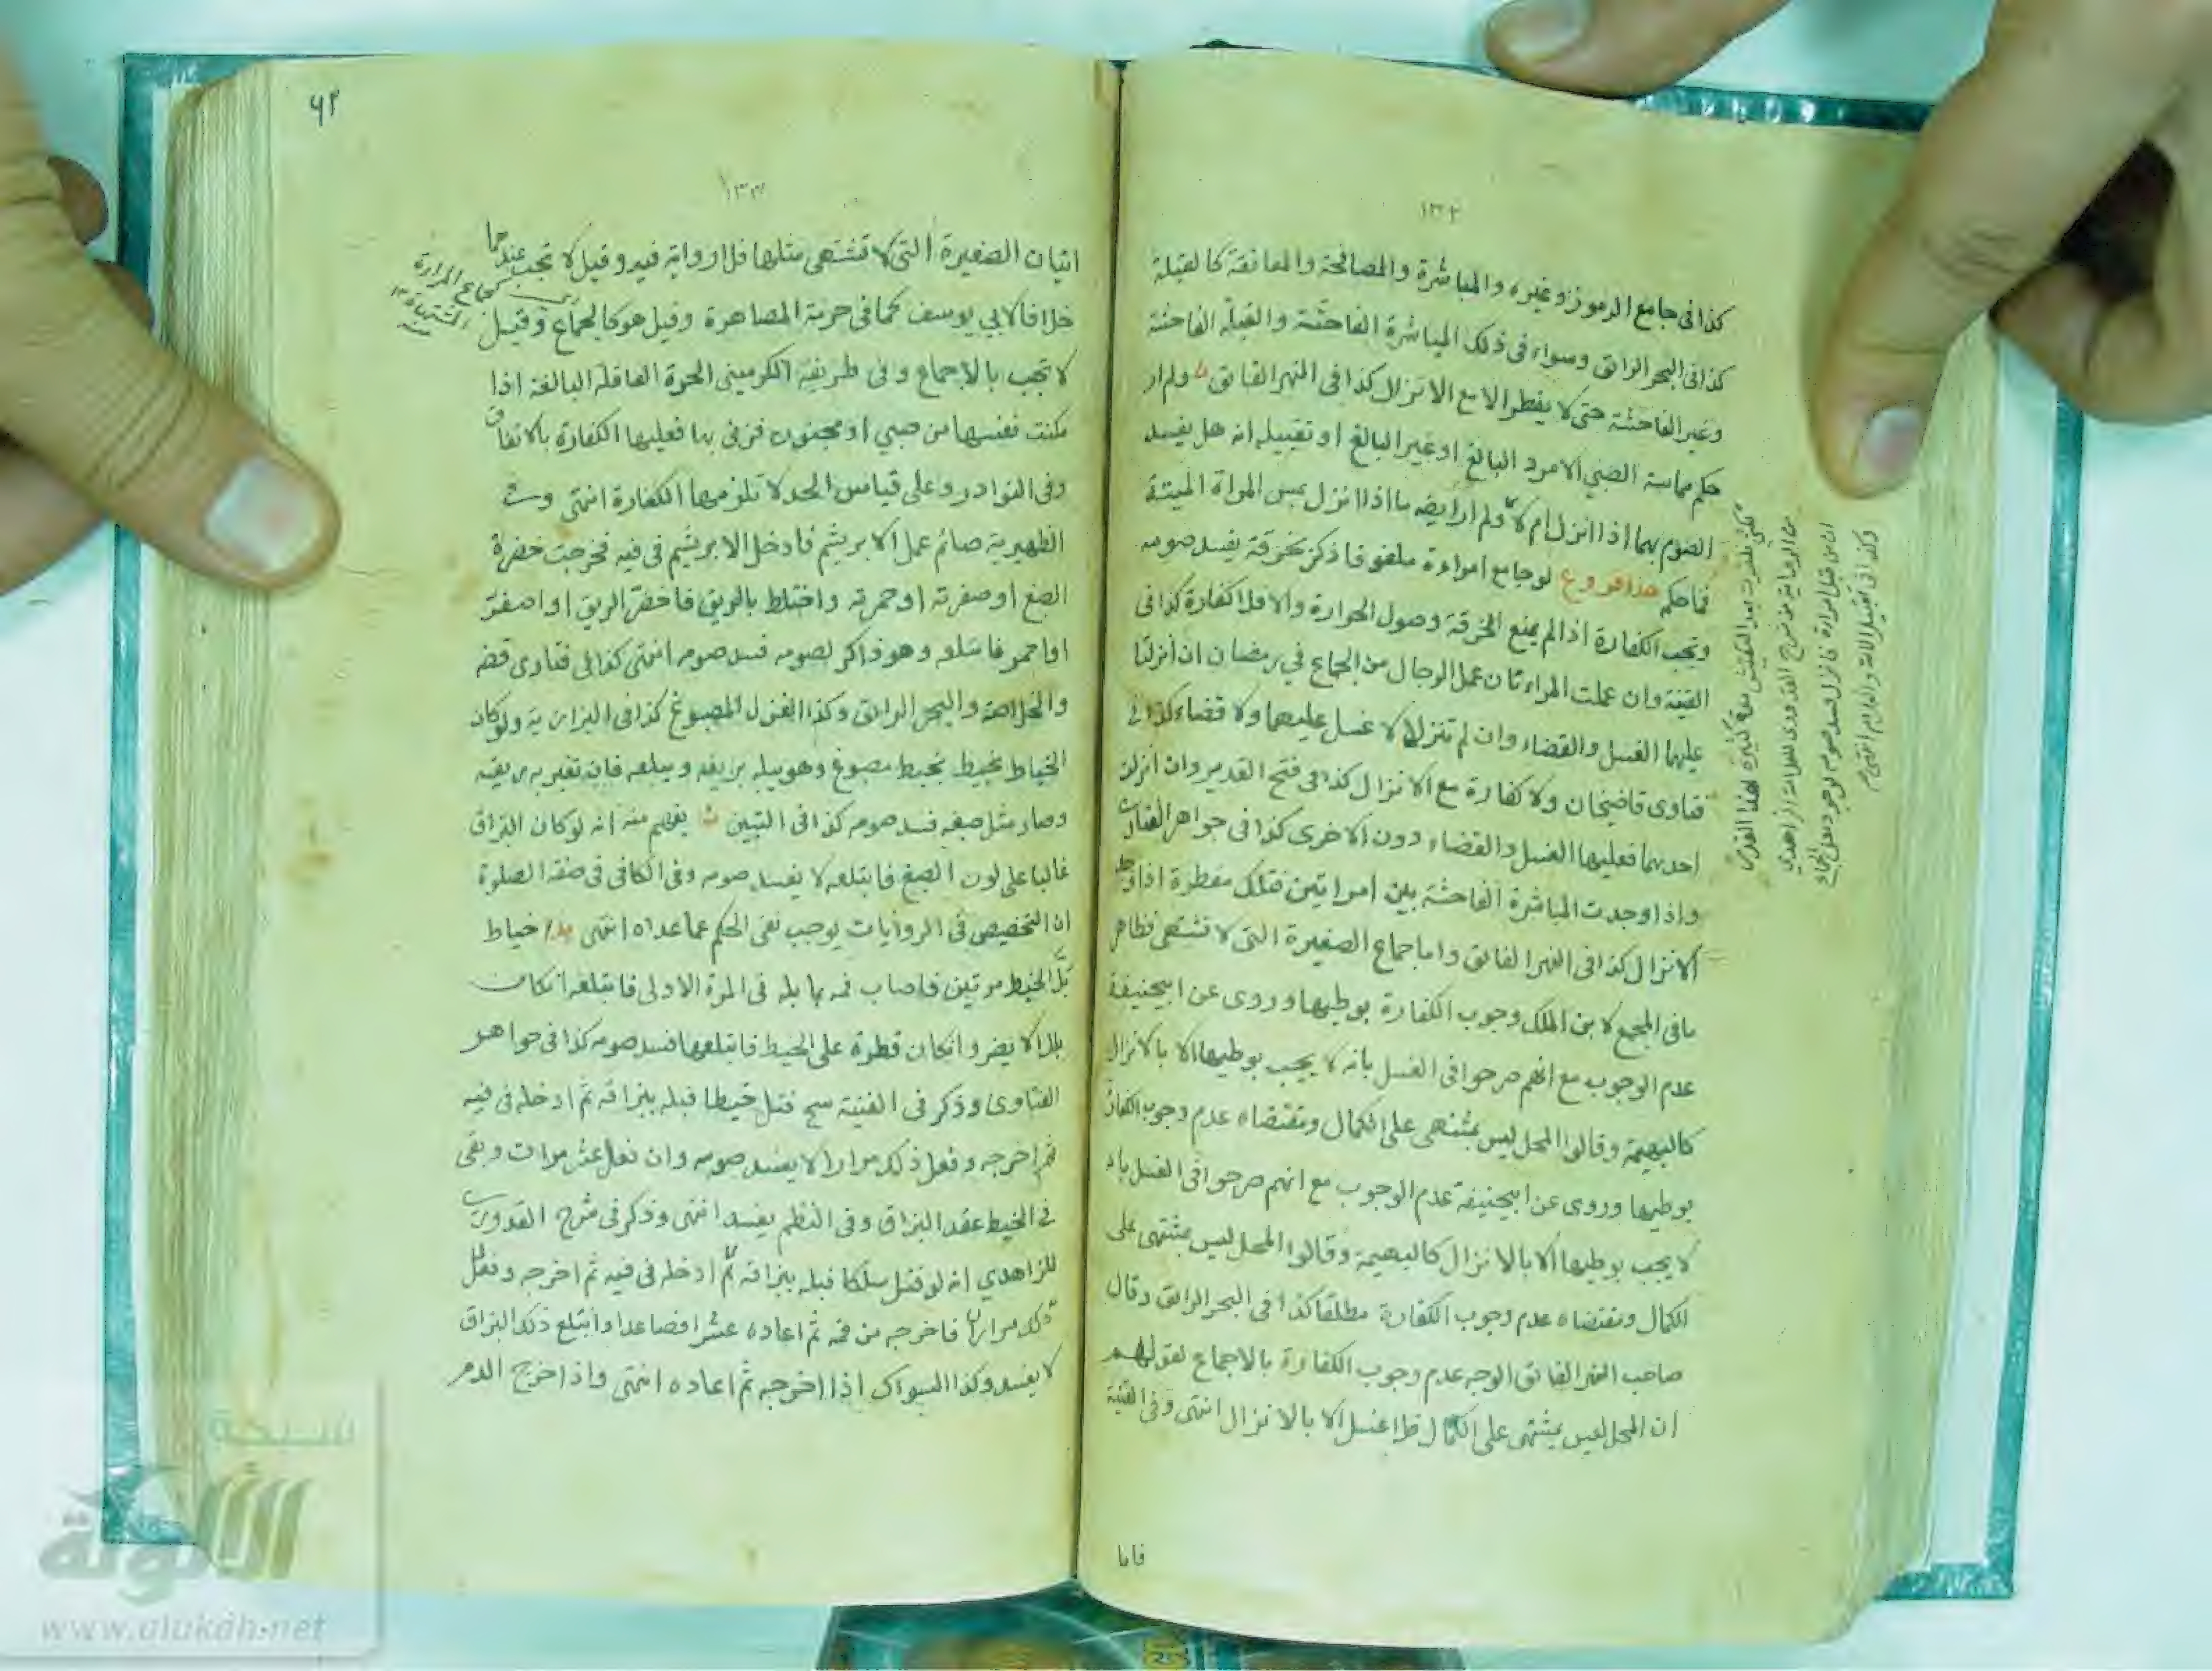 ١٣٢
كذا فى جامع الرموز وغيره والمباشرة والمصافحة والمعانقة كالقبلة
كذا فى البحر الرائق وسواء فى ذلك المباشرة الفاحشة والقبلة الفاحشة
وغير الفاحشة حتى لا يفطر الا مع الانزال كذا فى النهر الفائق ولم ار
حكم مماسة الصبي الامرد البالغ او غير البالغ او تقبيله انه هل يفسد
الصوم بهما اذا انزل ام لا ولم ار ايضا ما اذا انزل بمس المراة الميتة
فما حكم هذا فروع لو جامع امراءة ملفوفا ذكره بخرقة يفسد صومه
وتجب الكفارة اذا لم يمنع الخرقة وصول الحرارة والا فلا كفارة كذا فى
القنية وان عملت المراءتان عمل الرجال من الجماع في رمضان ان أنزلتا
عليهما الغسل والقضاء وان لم تنزلا لا غسل عليهما ولا قضاء كذا في
فتاوى قاضيخان ولا كفارة مع الانزال كذا فى فتح القدير وان أنزلت
احديهما فعليها الغسل والقضاء دون الاخرى كذا فى جواهر الفتاوى
واذا وجدت المباشرة الفاحشة بين امراتين فتلك مفطرة اذا وجد
الانزال كذا فى النهر الفائق واما جماع الصغيرة التى لا تشتهى فظاهر
ما فى المجمع لابن الملك وجوب الكفارة بوطيها وروى عن ابيحنيفة
عدم الوجوب مع انهم صرحوا فى الغسل بانه لا يجب بوطيها الا بالانزال
كالبهيمة وقالوا المحل ليس بمشتهى على الكمال ومقتضاه عدم وجوب الكفارة
بوطيها وروى عن ابيحنيفة عدم الوجوب مع انهم صرحوا فى الغسل بانه
لا يجب بوطيها الا بالانزال كالبهيمة وقالوا المحل ليس بمشتهى على
الكمال ومقتضاه عدم وجوب الكفارة مطلقا كذا فى البحر الرائق وقال
صاحب النهر الفائق الوجه عدم وجوب الكفارة بالاجماع لقولهم
ان المحل ليس بمشتهى على الكمال فلا غسل الا بالانزال انتهى وفى القنية
فاما
لكنى ظفرت بعد التفتيش مدة كثيرة لهذا
من الرواية من شرح القدورى للعلامة الزاهدي
ان من قبل امراءة فانزل فسد صومه لوجود معنى الجماع
وكذا فى تقبيل الامة والغلام انتهى
٦٢
١٣٣
اتيان الصغيرة التى لا تشتهى مثلها فلا رواية فيه وقيل لا تجب عندهما
خلافا لابي يوسف كما فى حرمة المصاهرة وقيل هو كالجماع وقيل
كجماع المراءة
المشتهاة
لا تجب بالاجماع وفى طريقة الكرمينى الحرة العاقلة البالغة اذا
مكنت نفسها من صبي او مجنون فزنى بها فعليها الكفارة بالاتفاق
وفى النوادر وعلى قياس الحد لا تلزمها الكفارة انتهى وفى
الظهيرية صائم عمل الابريشم فادخل الابريشم فى فيه فخرجت خضرة
الصبغ او صفرته او حمرته واختلط بالريق فاخضر الريق او اصفر
او احمر فابتلعه وهو ذاكر لصومه فسد صومه انتهى كذا فى فتاوى
والخلاصة والبحر الرائق وكذا الغزل المصبوغ كذا فى البزازية ولو كان
الخياط يخيط بخيط مصبوغ وهو يبله بريقه ويبلعه فانه تغير به ريقه
وصار مثل صبغه فسد صومه كذا فى التبين يفهم منه انه لو كان البزاق
غالبا على لون الصبغ فابتلعه لا يفسد صومه وفى الكافى فى صفة الصلوة
ان التخصيص فى الروايات يوجب نفى الحكم عما عداه انتهى هذا خياط
بلّ الخيط مرتين فاصاب فمه ما بله فى المرة الاولى فابتلعه ان كان
بللا لا يضر وانكان قطرة على الخيط فابتلعها فسد صومه كذا فى جواهر
الفتاوى وذكر فى القنية سج فتل خيطا فبله ببزاقه ثم ادخله فى فيه
ثم اخرجه وفعل ذلك مرارا لا يفسد صومه وان فعل عشر مرات وبقى
في الخيط عقد البزاق وفى النظم يفسد انتهى وذكر فى شرح القدورى
للزاهدي انه لو فتل سلكا فبله ببزاقه ثم ادخله فى فيه ثم اخرجه وفعل
ذلك مرارا فاخرجه من فمه ثم اعاده عشرا فصاعدا وابتلع ذلك البزاق
لا يفسد وكذا السواك اذا اخرجه ثم اعاده انتهى واذا خرج الدم
شبكة
الألوكة
www.alukah.net